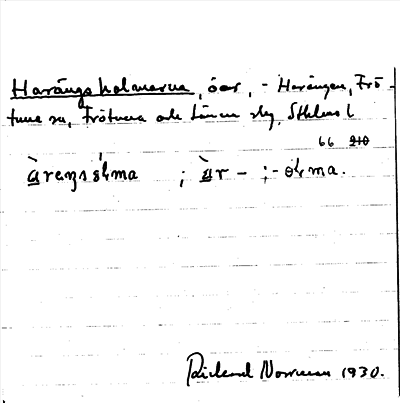 Harängsholmarna, öar, - Harängen, Frö-
tuna sn, Frötuna och Länna skg, Sthlms l
66 210
àreŋsɜl̥ma ; àr - ; - ol̥ma.
Rickard Norrman 1930.